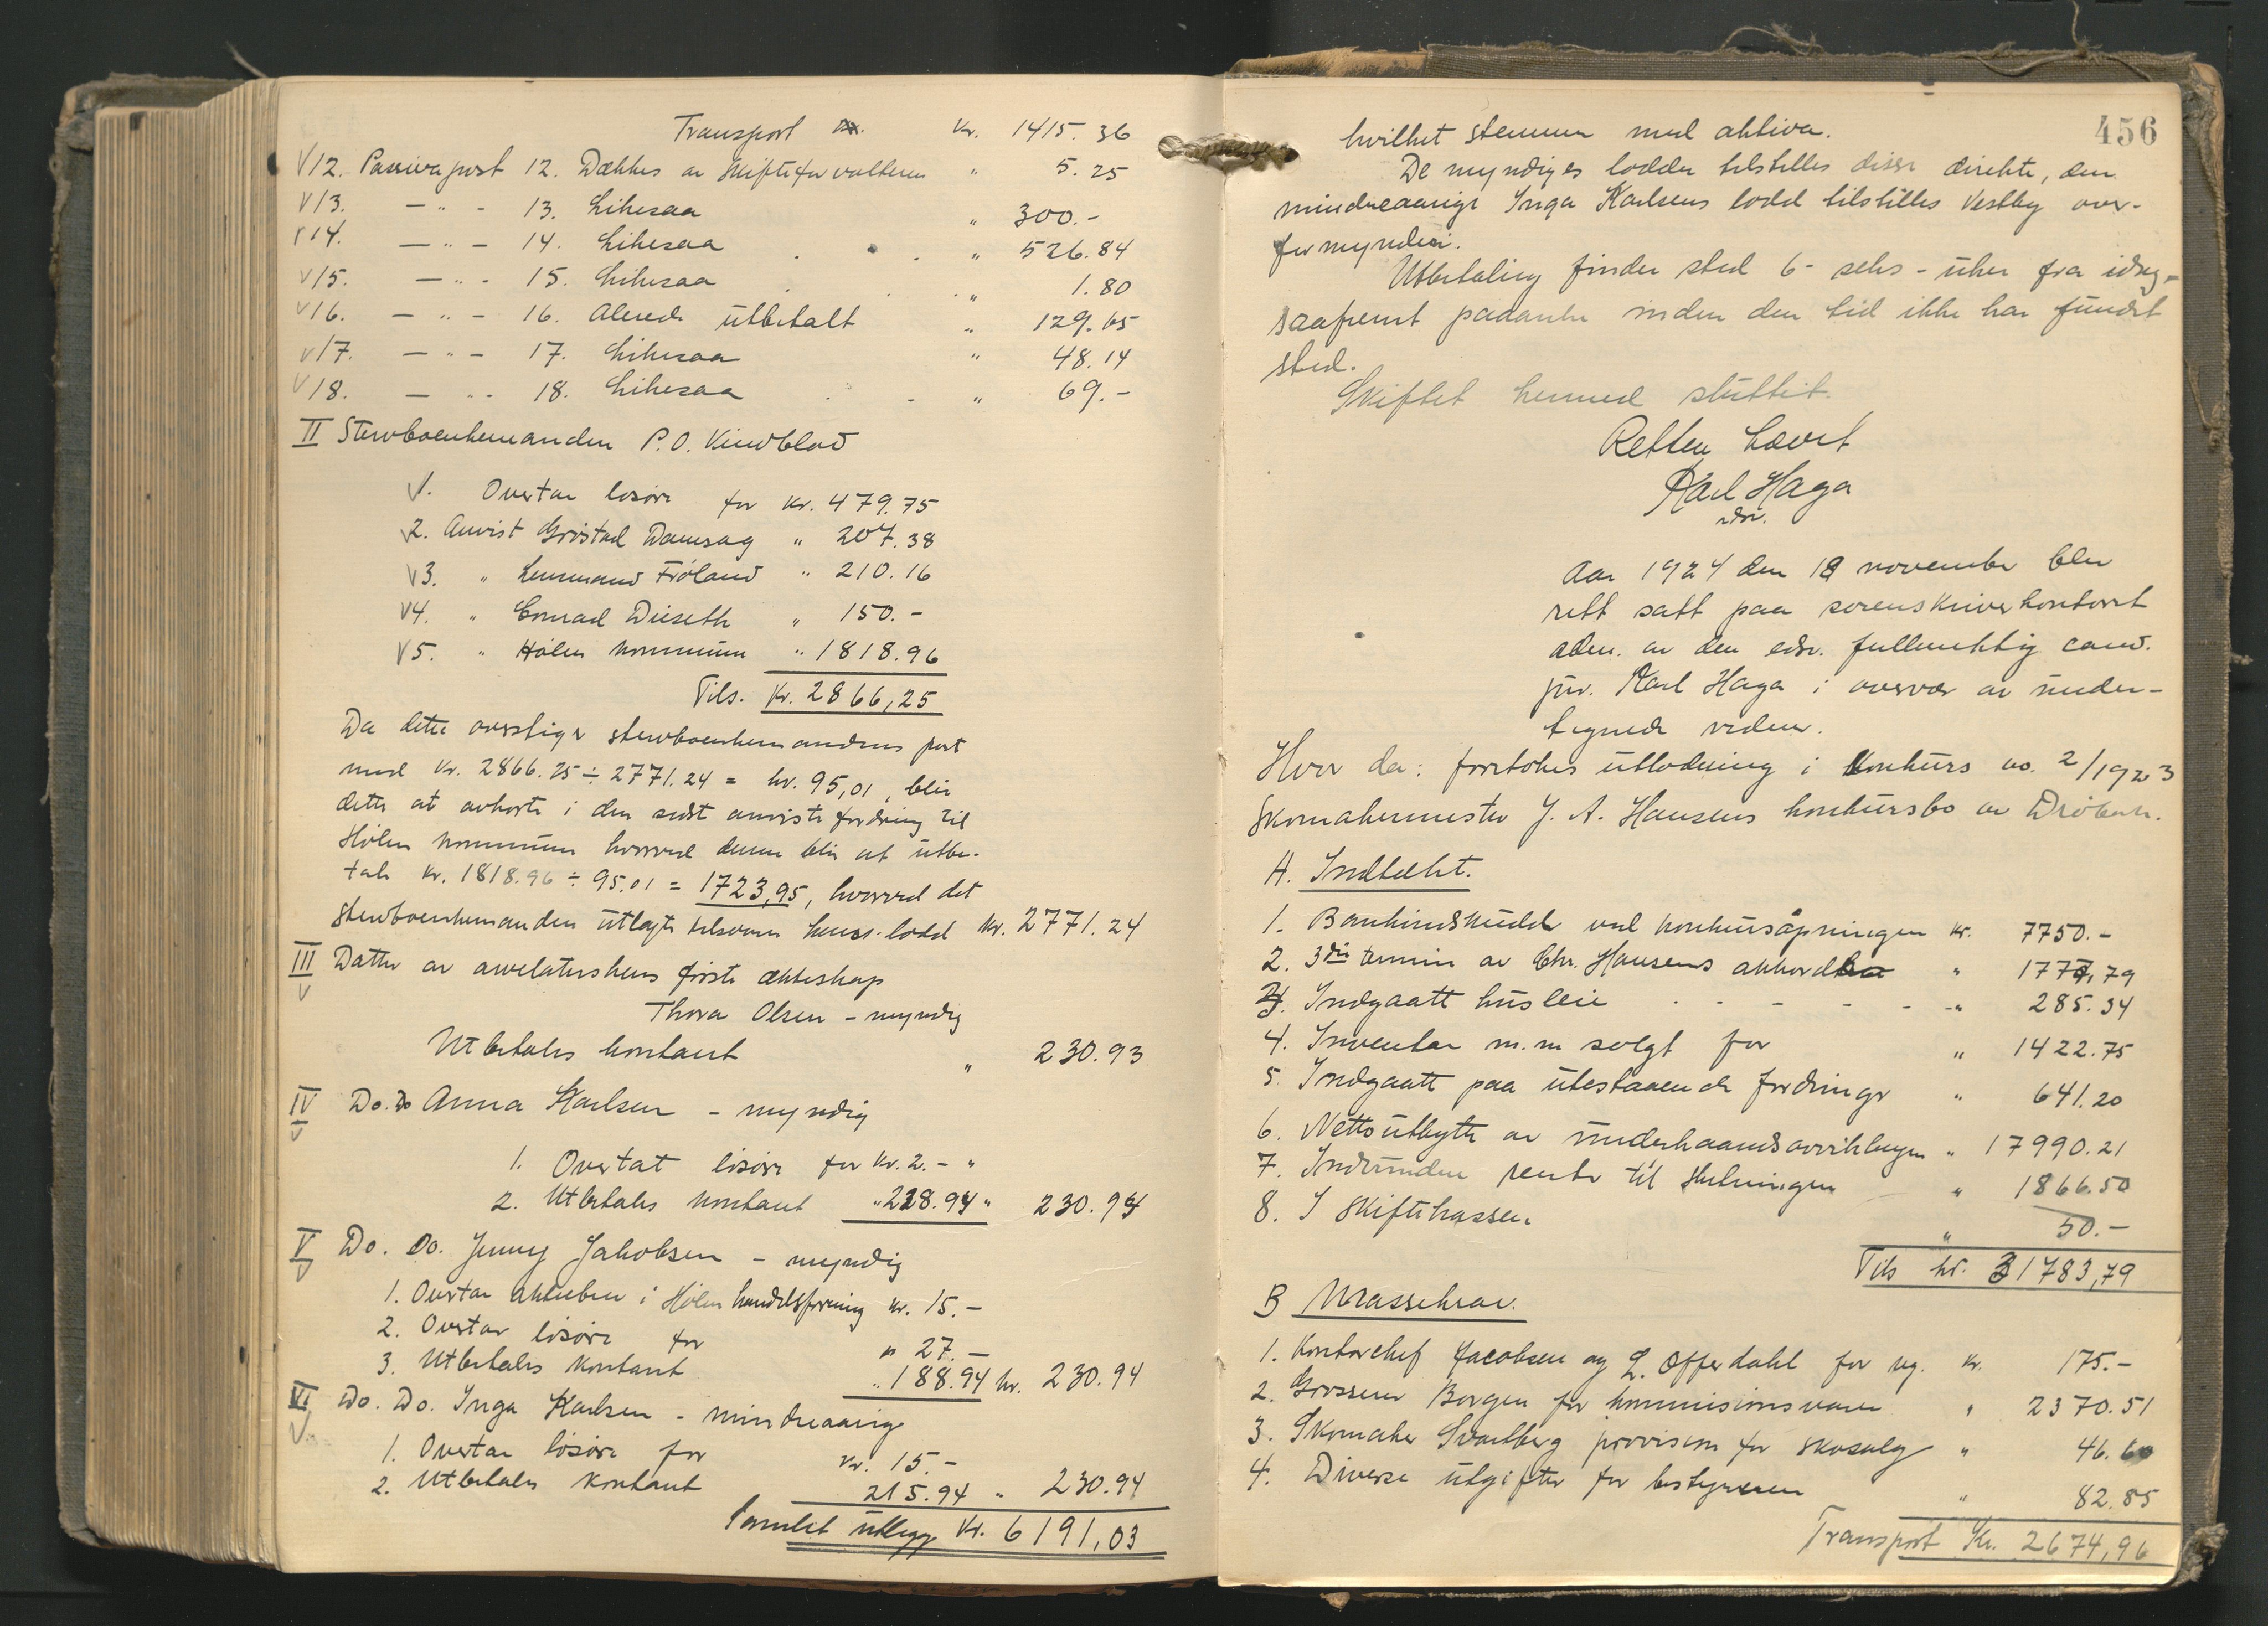 Transport Kr. 1415.36
V12. Passiva post 12. Dækkes av Skifteforvalteren " 5.25
V13. — " - 13. Likesaa " 300.-
V14. — " - 14. Likesaa " 526.84
V15. — " - 15. Likesaa " 1.80
V16. — " - 16. Alerede utbetalt " 129.65
V17. — " - 17. Likesaa " 48.14
V18. — " - 18. Likesaa " 69.-
II Stervboenkemanden P.O. Vindblad
1. Overtar løsøre for Kr. 479.75
2. Anvist Grøstad Damsag " 207.38
V3. " Lensmand Frøland " 210.16
V4. " Conrad Dieseth " 150.-
V5. " Hølen kommune " 1818.96
Tils. Kr. 2866,25
Da dette overstiger stervboenkemandens part
med Kr. 2866.25 ÷ 2771.24 = kr. 95,01, blir
dette at avkorte i den sidst anviste fordring til
Hølen kommune hvorved denne blir at utbe-
tale Kr. 1818.96 ÷ 95.01 = 1723,95, hvorved det
stervboenkemanden utlagte tilsvarer hans lodd Kr. 2771.24
III Datter av avelaterskens første ekteskap
V
Thora Olsen - myndig
Utbetales kontant " 230.93
IV Do. Do Anna Karlsen - myndig
V
1. Overtat løsøre for Kr. 2.- "
2. Utbetales kontant " 228.94 " 230.94
V Do. Do. Jenny Jakobsen - myndig
V
1. Overtar aktiebrev i Hølen handelsforening Kr. 15.-
2. Overtar løsøre for " 27.-
3. Utbetales kontant " 188.94 kr. 230.94
VI Do. Do. Inga Karlsen - mindreaarig
V
1. Overtar løsøre for Kr. 15.-
2. Utbetales kontant 215.94 " 230.94
Samlet utlegg Kr. 6191,03
456
hvilket stemmer med aktiva.
De myndiges lodder tilstilles disse direkte, den
mindreaarige Inga Karlsens lodd tilstilles Vestby over-
formynderi.
Utbetaling finder sted 6- seks - uker fra idag,
saafremt paaanke inden den tid ikke har fundet
sted.
Skiftet hermed sluttet.
Retten hævet
Karl Haga
edsv.
Aar 1924 den 18 november blev
rett satt paa sorenskriverkontoret
adm. av den edsv. fullmektig cand.
jur. Karl Haga i overvær av under-
tegnede vidner.
Hvor da: foretokes utlodning i Konkurs no. 2/1923
Skomakermester J. A. Hansens konkursbo av Drøbak.
A. Indtekt.
1. Bankindskudd ved konkursåpningen kr. 7750.-
2. 3die termin av Chr. Hansens akkord " 1777,79
3. Indgaatt husleie - - - - " 285.34
4. Inventar m.m solgt for " 1422.75
5. Indgaatt paa utestaaende fordringer " 641.20
6. Netto utbytte av underhaandsavviklingen " 17990.21
7. Indvunden rente til slutningen " 1866.50
8. I skiftekassen " 50.-
Tils kr. 31783,79
B Massekrav.
1. Kontorchef Jacobsen og L. Offerdahl for reg. Kr. 175.-
2. Grosserer Borgen for kommisionsvarer " 2370.51
3. Skomaker Svartberg provision for skosalg " 46.60
4. Diverse utgifter for bestyreren " 82.85
Transport Kr. 2674,96